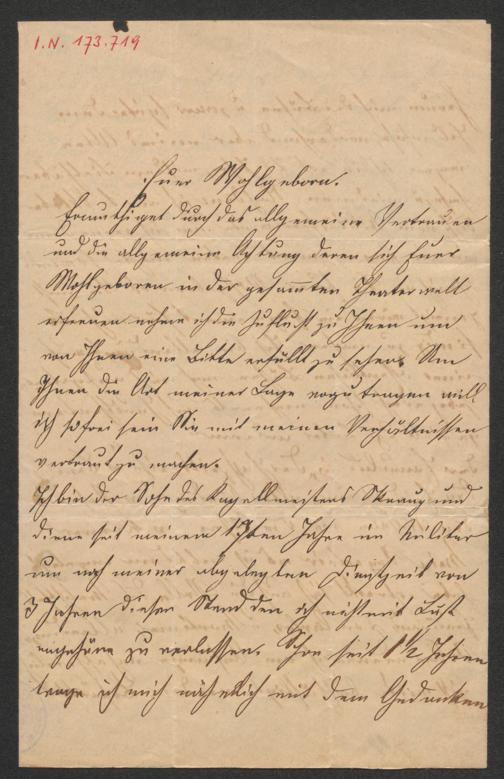 I.N. 173.719
Euer Wohlgeborn.
Ermuthiget durch das allgemeine Vertrauen
und die allgemeine Achtung deren sich Euer
Wohlgeboren in der gesammten Theaterwelt
erfreuen nehme ich die Zuflucht zu Ihnen um
von Ihnen eine Bitte erfüllt zu sehen. Um
Ihnen die Art meiner Lage vorzutragen will
ich so frei sein Sie mit meinen Verhältnissen
vertraut zu machen.
Ich bin der Sohn des Kapellmeisters und
diene seit meinem 17ten Jahre im Militär
um nach meiner abgelegten Dienstzeit von
3 Jahren diesen Stand den ich nicht mit Lust
angehöre zu verlassen. Schon seit 1½ Jahren
trage ich mich nähmlich mit dem Gedanken